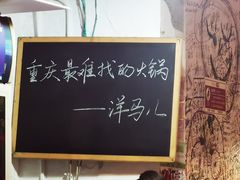 重庆最难找的火锅
——洋马儿